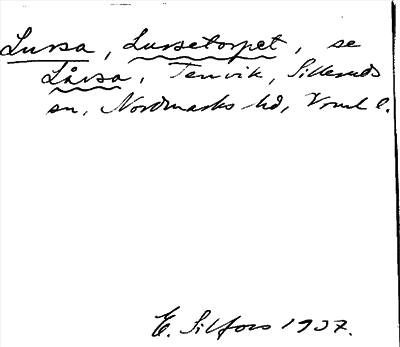 Lussa, Lussetorpet, se
Låssa, Temvik, Silleruds
sn, Nordmarks hd, Vrml l.
E. Silfors 1937.